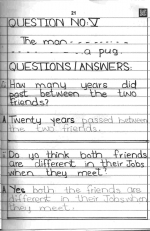 21
QUESTION NO: V
The man ..........
.......... a pug.
QUESTIONS / ANSWERS:
How many years did
past between the two
friends?
A Twenty years passed between
the two friends.
Do yo think both friends
are different in their Jobs
when they meet?
A Yes both the friends are
different in their Jobs when
they meet.